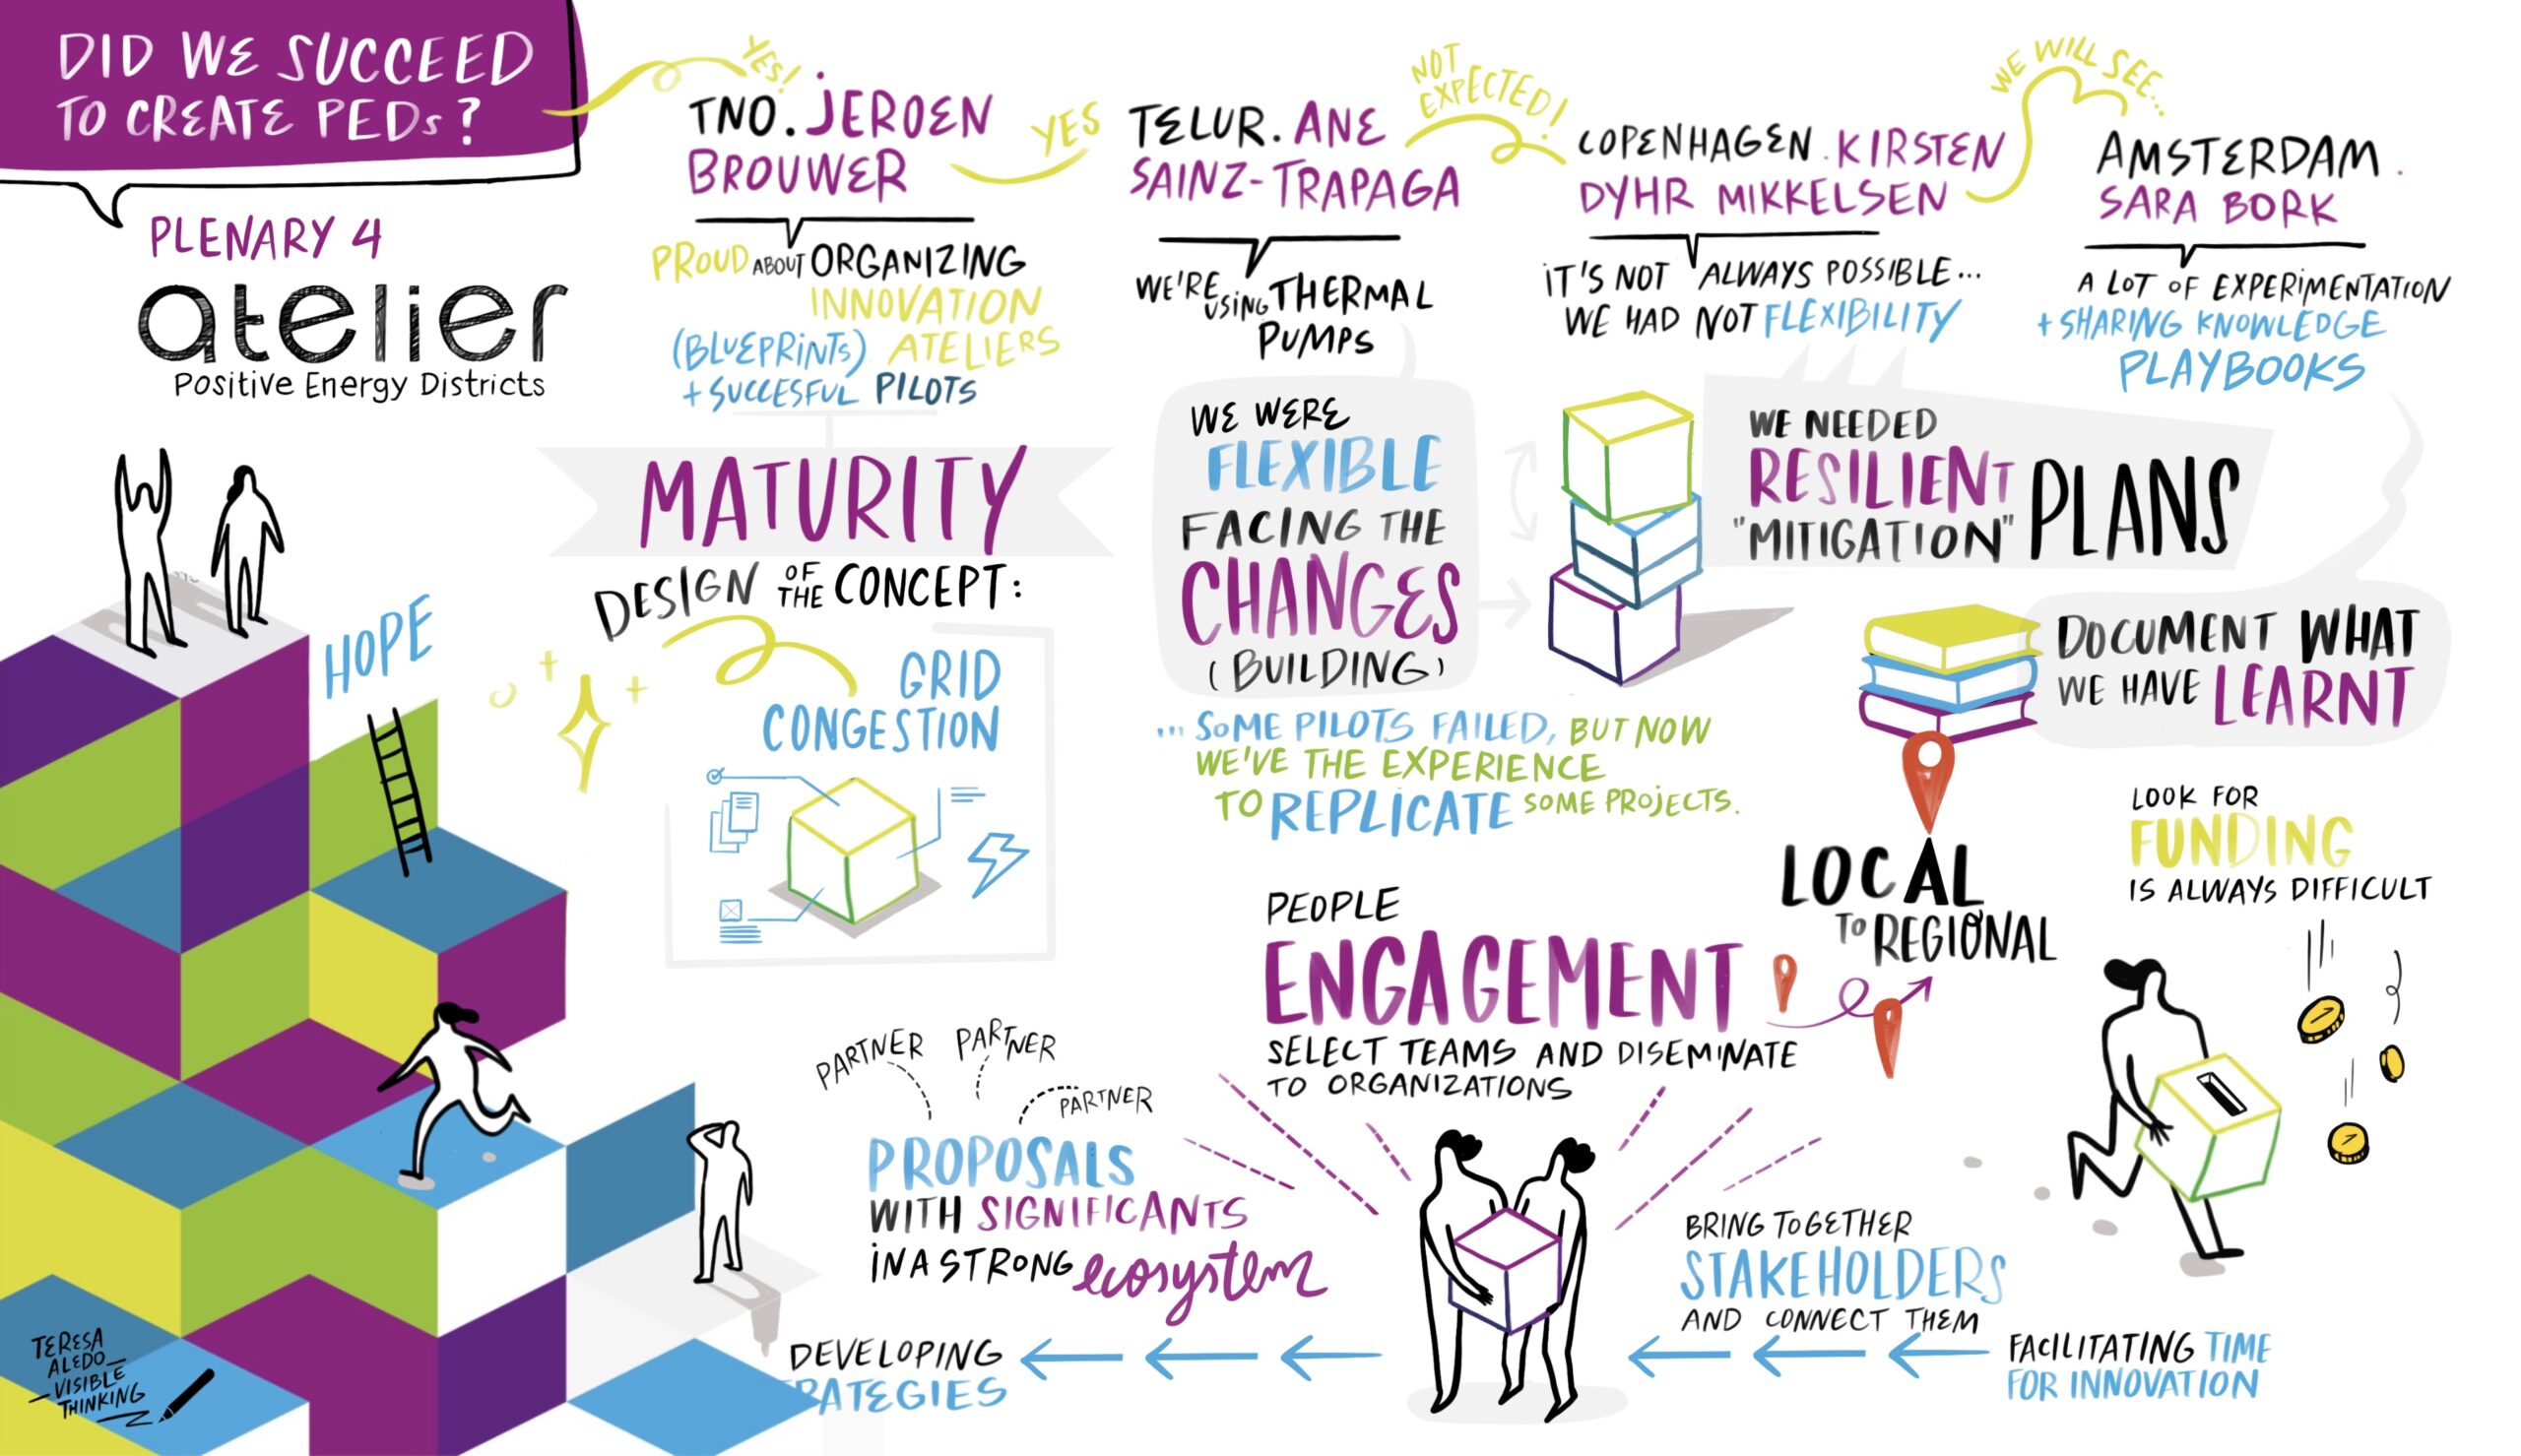 DID WE SUCCEED
TO CREATE PEDs?
PLENARY 4
atelier
Positive Energy Districts
YES!
TNO. JEROEN
BROUWER
PROUD ABOUT ORGANIZING
INNOVATION
(BLUEPRINTS) ATELIERS
+ SUCCESFUL PILOTS
YES
TELUR. ANE
SAINZ-TRAPAGA
WE'RE USING THERMAL
PUMPS
NOT
EXPECTED!
COPENHAGEN. KIRSTEN
DYHR MIKKELSEN
IT'S NOT ALWAYS POSSIBLE...
WE HAD NOT FLEXIBILITY
WE WILL SEE...
AMSTERDAM.
SARA BORK
A LOT OF EXPERIMENTATION
+ SHARING KNOWLEDGE
PLAYBOOKS
MATURITY
DESIGN OF THE CONCEPT:
GRID
CONGESTION
HOPE
WE WERE
FLEXIBLE
FACING THE
CHANGES
(BUILDING)
WE NEEDED
RESILIENT
"MITIGATION" PLANS
DOCUMENT WHAT
WE HAVE LEARNT
... SOME PILOTS FAILED, BUT NOW
WE'VE THE EXPERIENCE
TO REPLICATE SOME PROJECTS.
LOCAL
TO REGIONAL
LOOK FOR
FUNDING
IS ALWAYS DIFFICULT
PEOPLE
ENGAGEMENT
SELECT TEAMS AND DISEMINATE
TO ORGANIZATIONS
PARTNER
PARTNER
PARTNER
PROPOSALS
WITH SIGNIFICANTS
IN A STRONG ecosystem
BRING TOGETHER
STAKEHOLDERS
AND CONNECT THEM
FACILITATING TIME
FOR INNOVATION
DEVELOPING
RATEGIES
TERESA
ALEDO
VISIBLE
THINKING